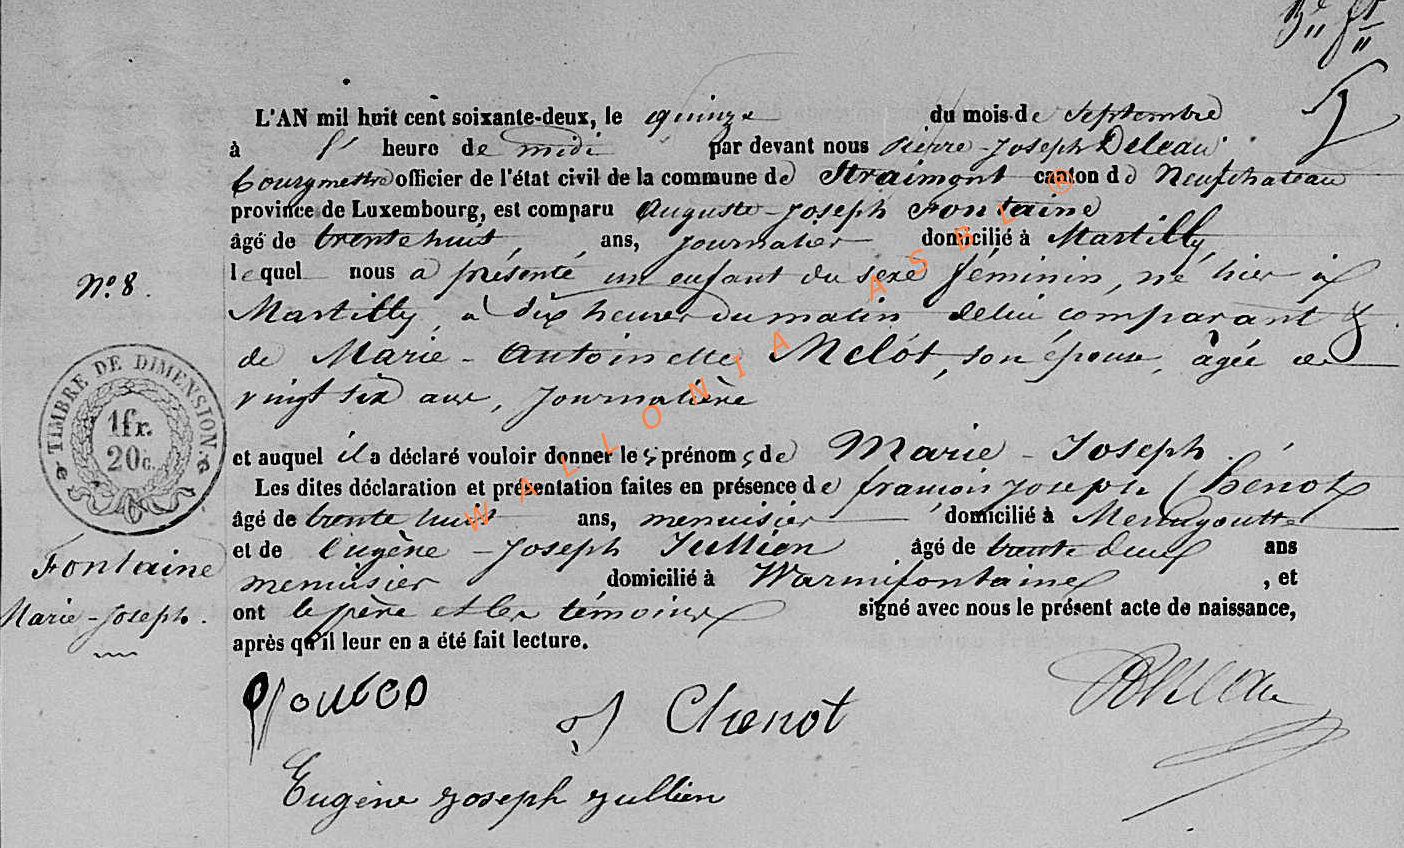 L'AN mil huit cent soixante-deux, le quinze du mois de Septembre
à heure de midi par devant nous Pierre-Joseph Deleau
bourgmestre officier de l'état civil de la commune de Straimont canton de Neufchateau
province de Luxembourg, est comparu Auguste-Joseph Fontaine
âgé de trente huit, ans, journalier domicilié à Martilly
lequel nous a présenté un enfant du sexe féminin, né hier à
N° 8.
Martilly, à dix heures du matin de lui comparant &
de Marie-Antoinette Melot, son épouse, âgée de
vingt six ans, journalière
TIMBRE DE DIMENSION
1fr.
20c.
et auquel il a déclaré vouloir donner les prénoms de Marie-Joseph.
Les dites déclaration et présentation faites en présence de françois joseph Chénot
âgé de trente huit ans, menuisier domicilié à
et de Eugène-Joseph Jullien âgé de trente deux ans
Fontaine
menuisier domicilié à Warmifontaine, et
Marie-Joseph.
ont le père et les témoins signé avec nous le présent acte de naissance,
après qu'il leur en a été fait lecture.
Chenot
Deleau
Eugène joseph jullien
WALLONIA ASBL ®